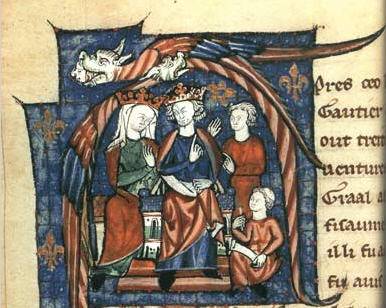 pres ce
Gautier
out tret
uenture
Graal a
fisaume
illi fu a
fu aui